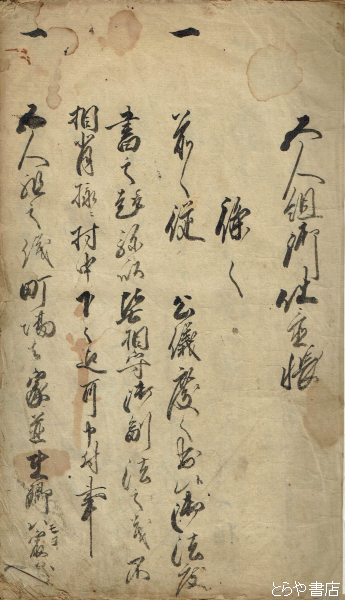 五人組御仕置帳
條々
一 前々従 公儀度々被仰出候御法度
書之趣弥以堅相守御制法之義不
相背様ニ村中下々迄可申付事
一 五人組之儀町場者家並在郷者最寄
とらや書店